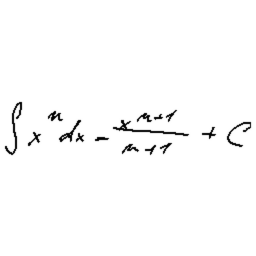 ∫ x^n dx - x^{n+1}/n+1 + C